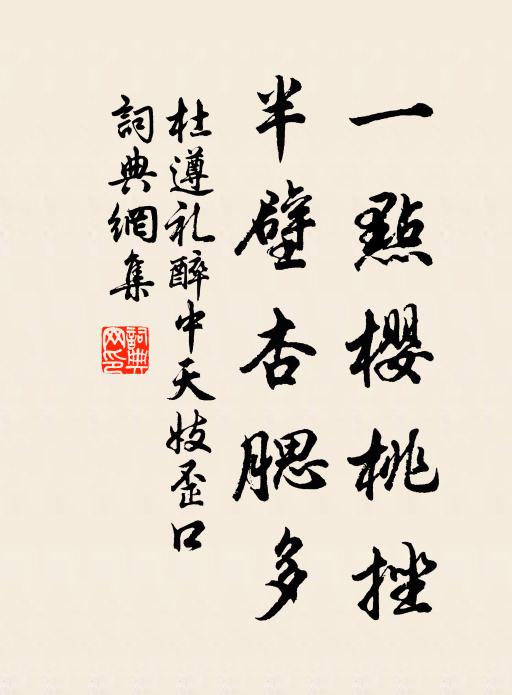 一點櫻桃挫
半壁杏腮多
杜遵礼醉中天妓歪口
詞典網集
詞典网印